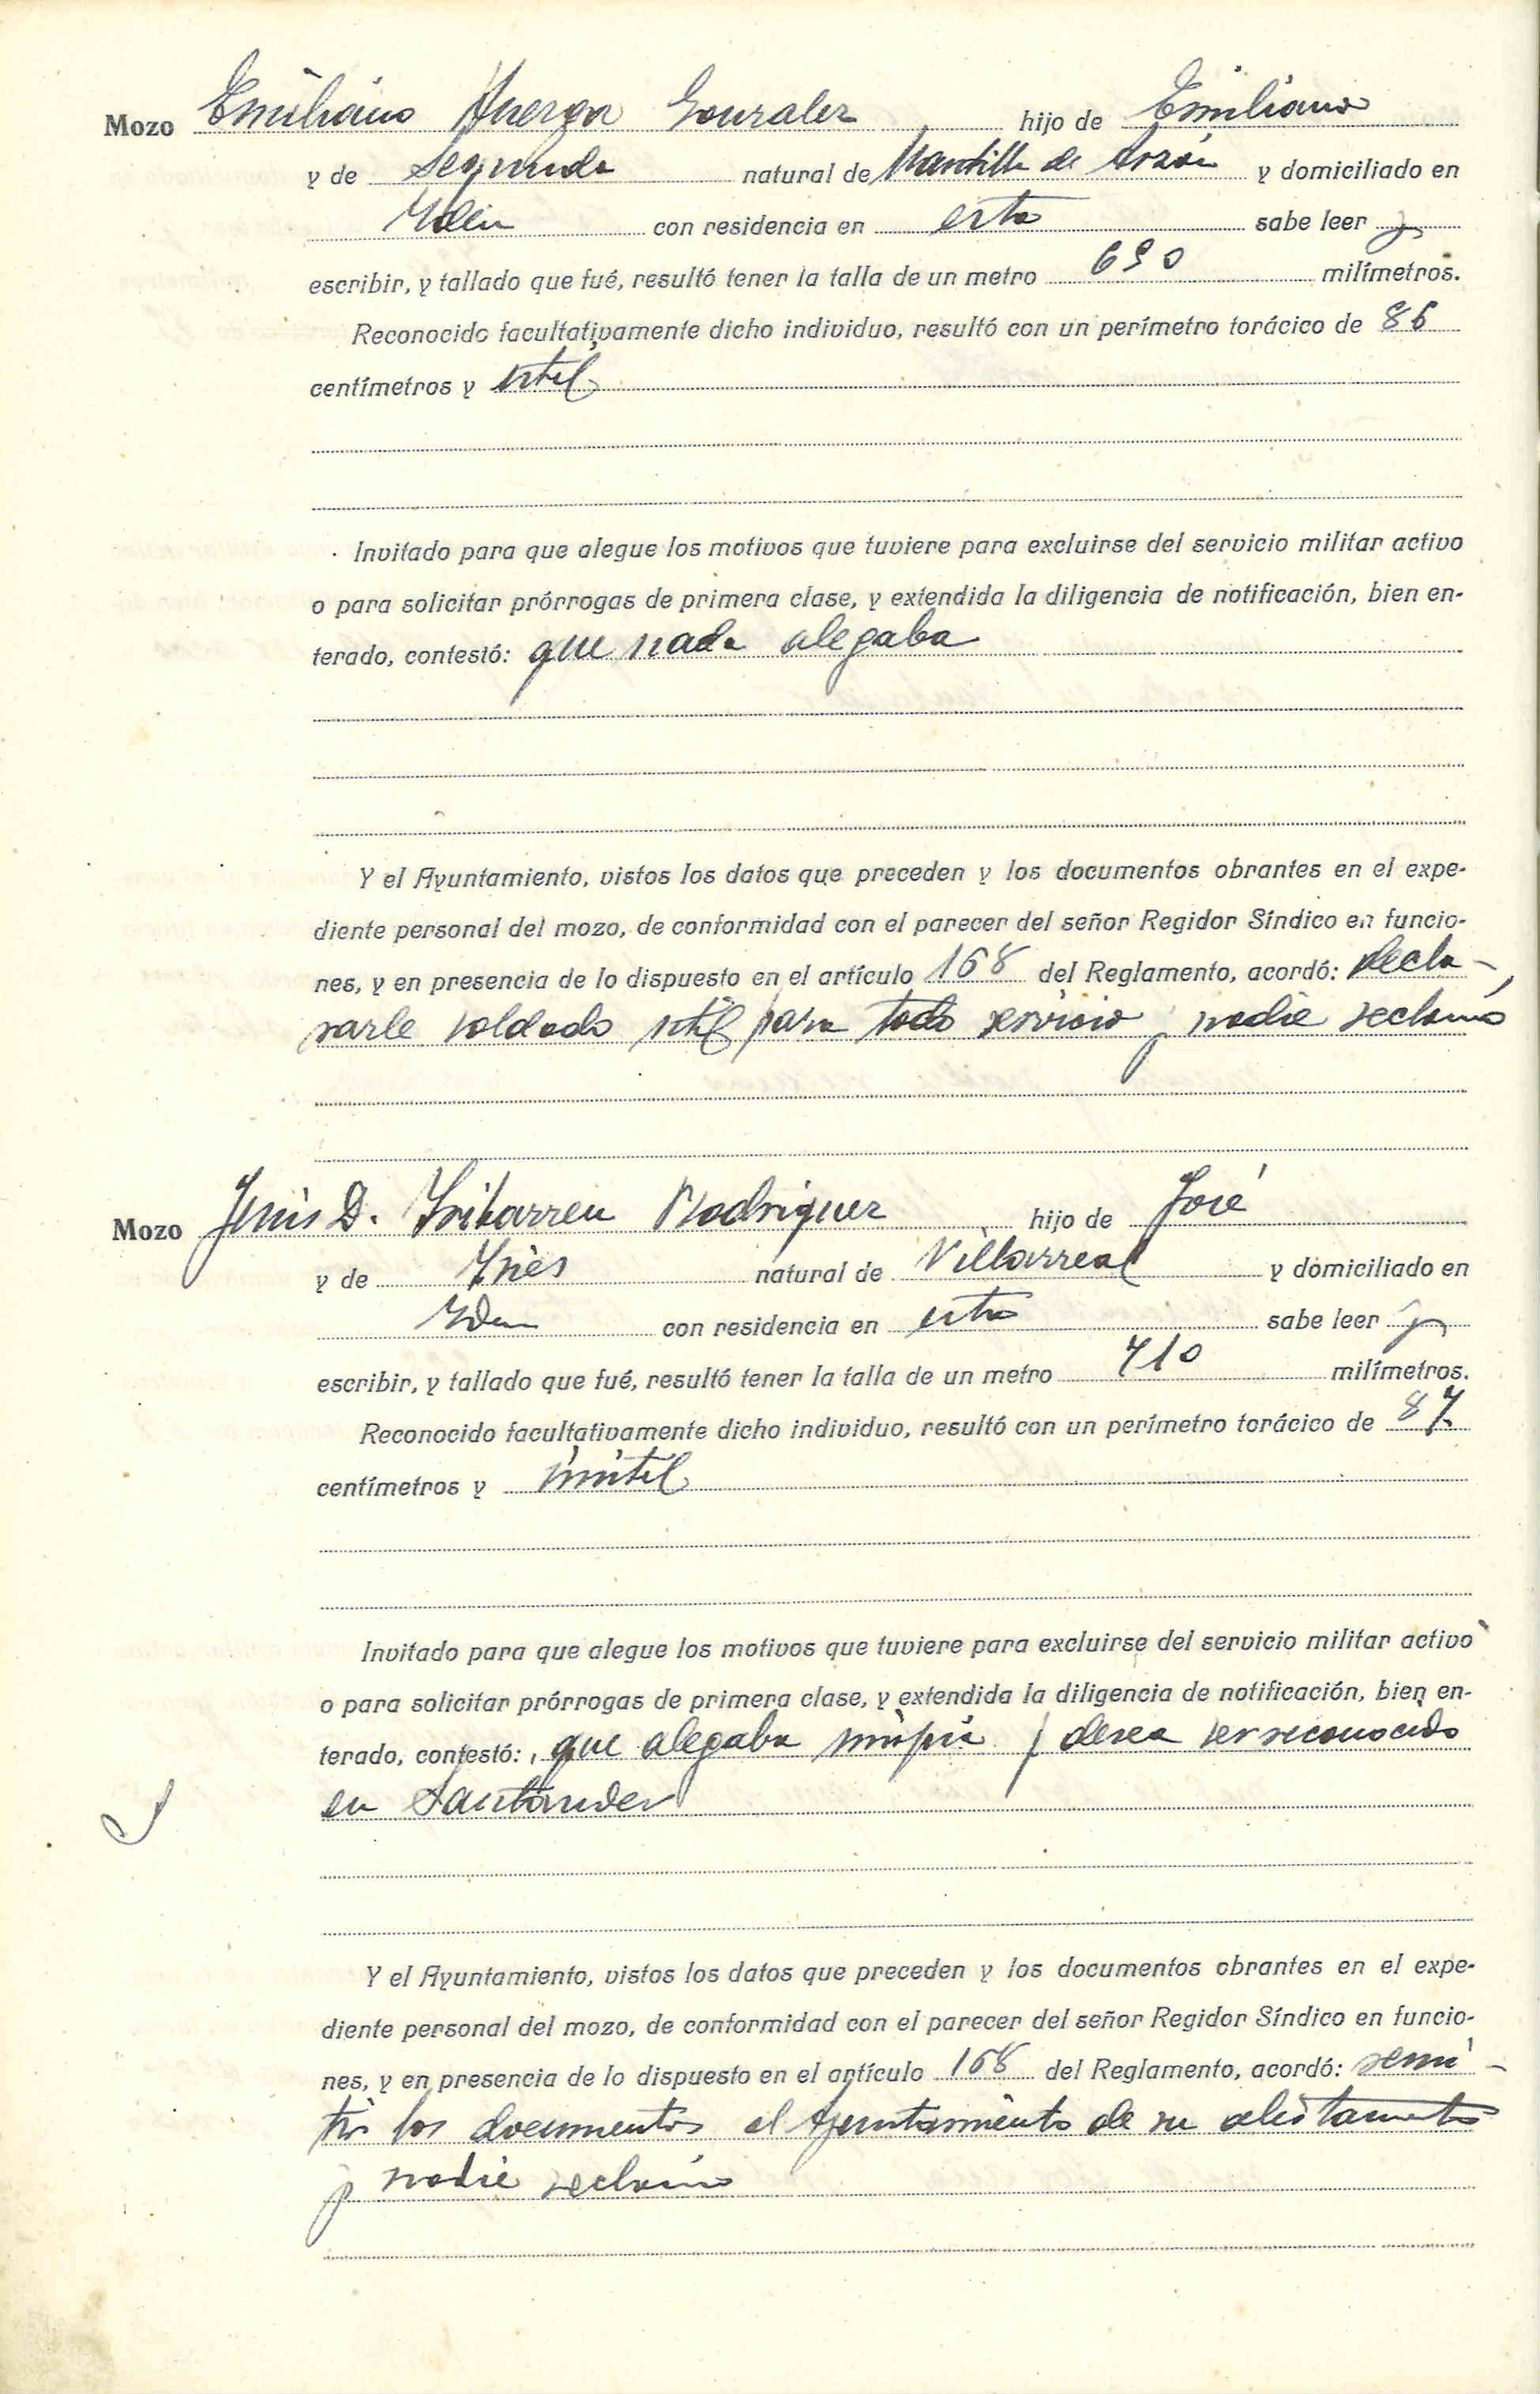 Mozo Emiliano Huerga Gonzalez hijo de Emiliano
y de Segunda natural de Mansilla de y domiciliado en
Idem con residencia en esta sabe leer y
escribir, y tallado que fué, resultó tener la talla de un metro 690 milímetros.
Reconocido facultativamente dicho individuo, resultó con un perímetro torácico de 86
centímetros y útil
Invitado para que alegue los motivos que tuviere para excluirse del servicio militar activo
o para solicitar prórrogas de primera clase, y extendida la diligencia de notificación, bien en-
terado, contestó: que nada alegaba
Y el Ayuntamiento, vistos los datos que preceden y los documentos obrantes en el expe-
diente personal del mozo, de conformidad con el parecer del señor Regidor Síndico en funcio-
nes, y en presencia de lo dispuesto en el artículo 168 del Reglamento, acordó: decla-
rarle soldado útil para todo servicio y nadie reclamó
Mozo Jesús D. Iribarren Rodriguez hijo de José
y de Inés natural de Villarreal y domiciliado en
Idem con residencia en esta sabe leer y
escribir, y tallado que fué, resultó tener la talla de un metro 710 milímetros.
Reconocido facultativamente dicho individuo, resultó con un perímetro torácico de 87
centímetros y inútil
Invitado para que alegue los motivos que tuviere para excluirse del servicio militar activo
o para solicitar prórrogas de primera clase, y extendida la diligencia de notificación, bien en-
terado, contestó: que alegaba miopía y desea ser reconocido
en Santander
Y el Ayuntamiento, vistos los datos que preceden y los documentos obrantes en el expe-
diente personal del mozo, de conformidad con el parecer del señor Regidor Síndico en funcio-
nes, y en presencia de lo dispuesto en el artículo 168 del Reglamento, acordó: remi-
tir los documentos al Ayuntamiento de su alistamiento
y nadie reclamó